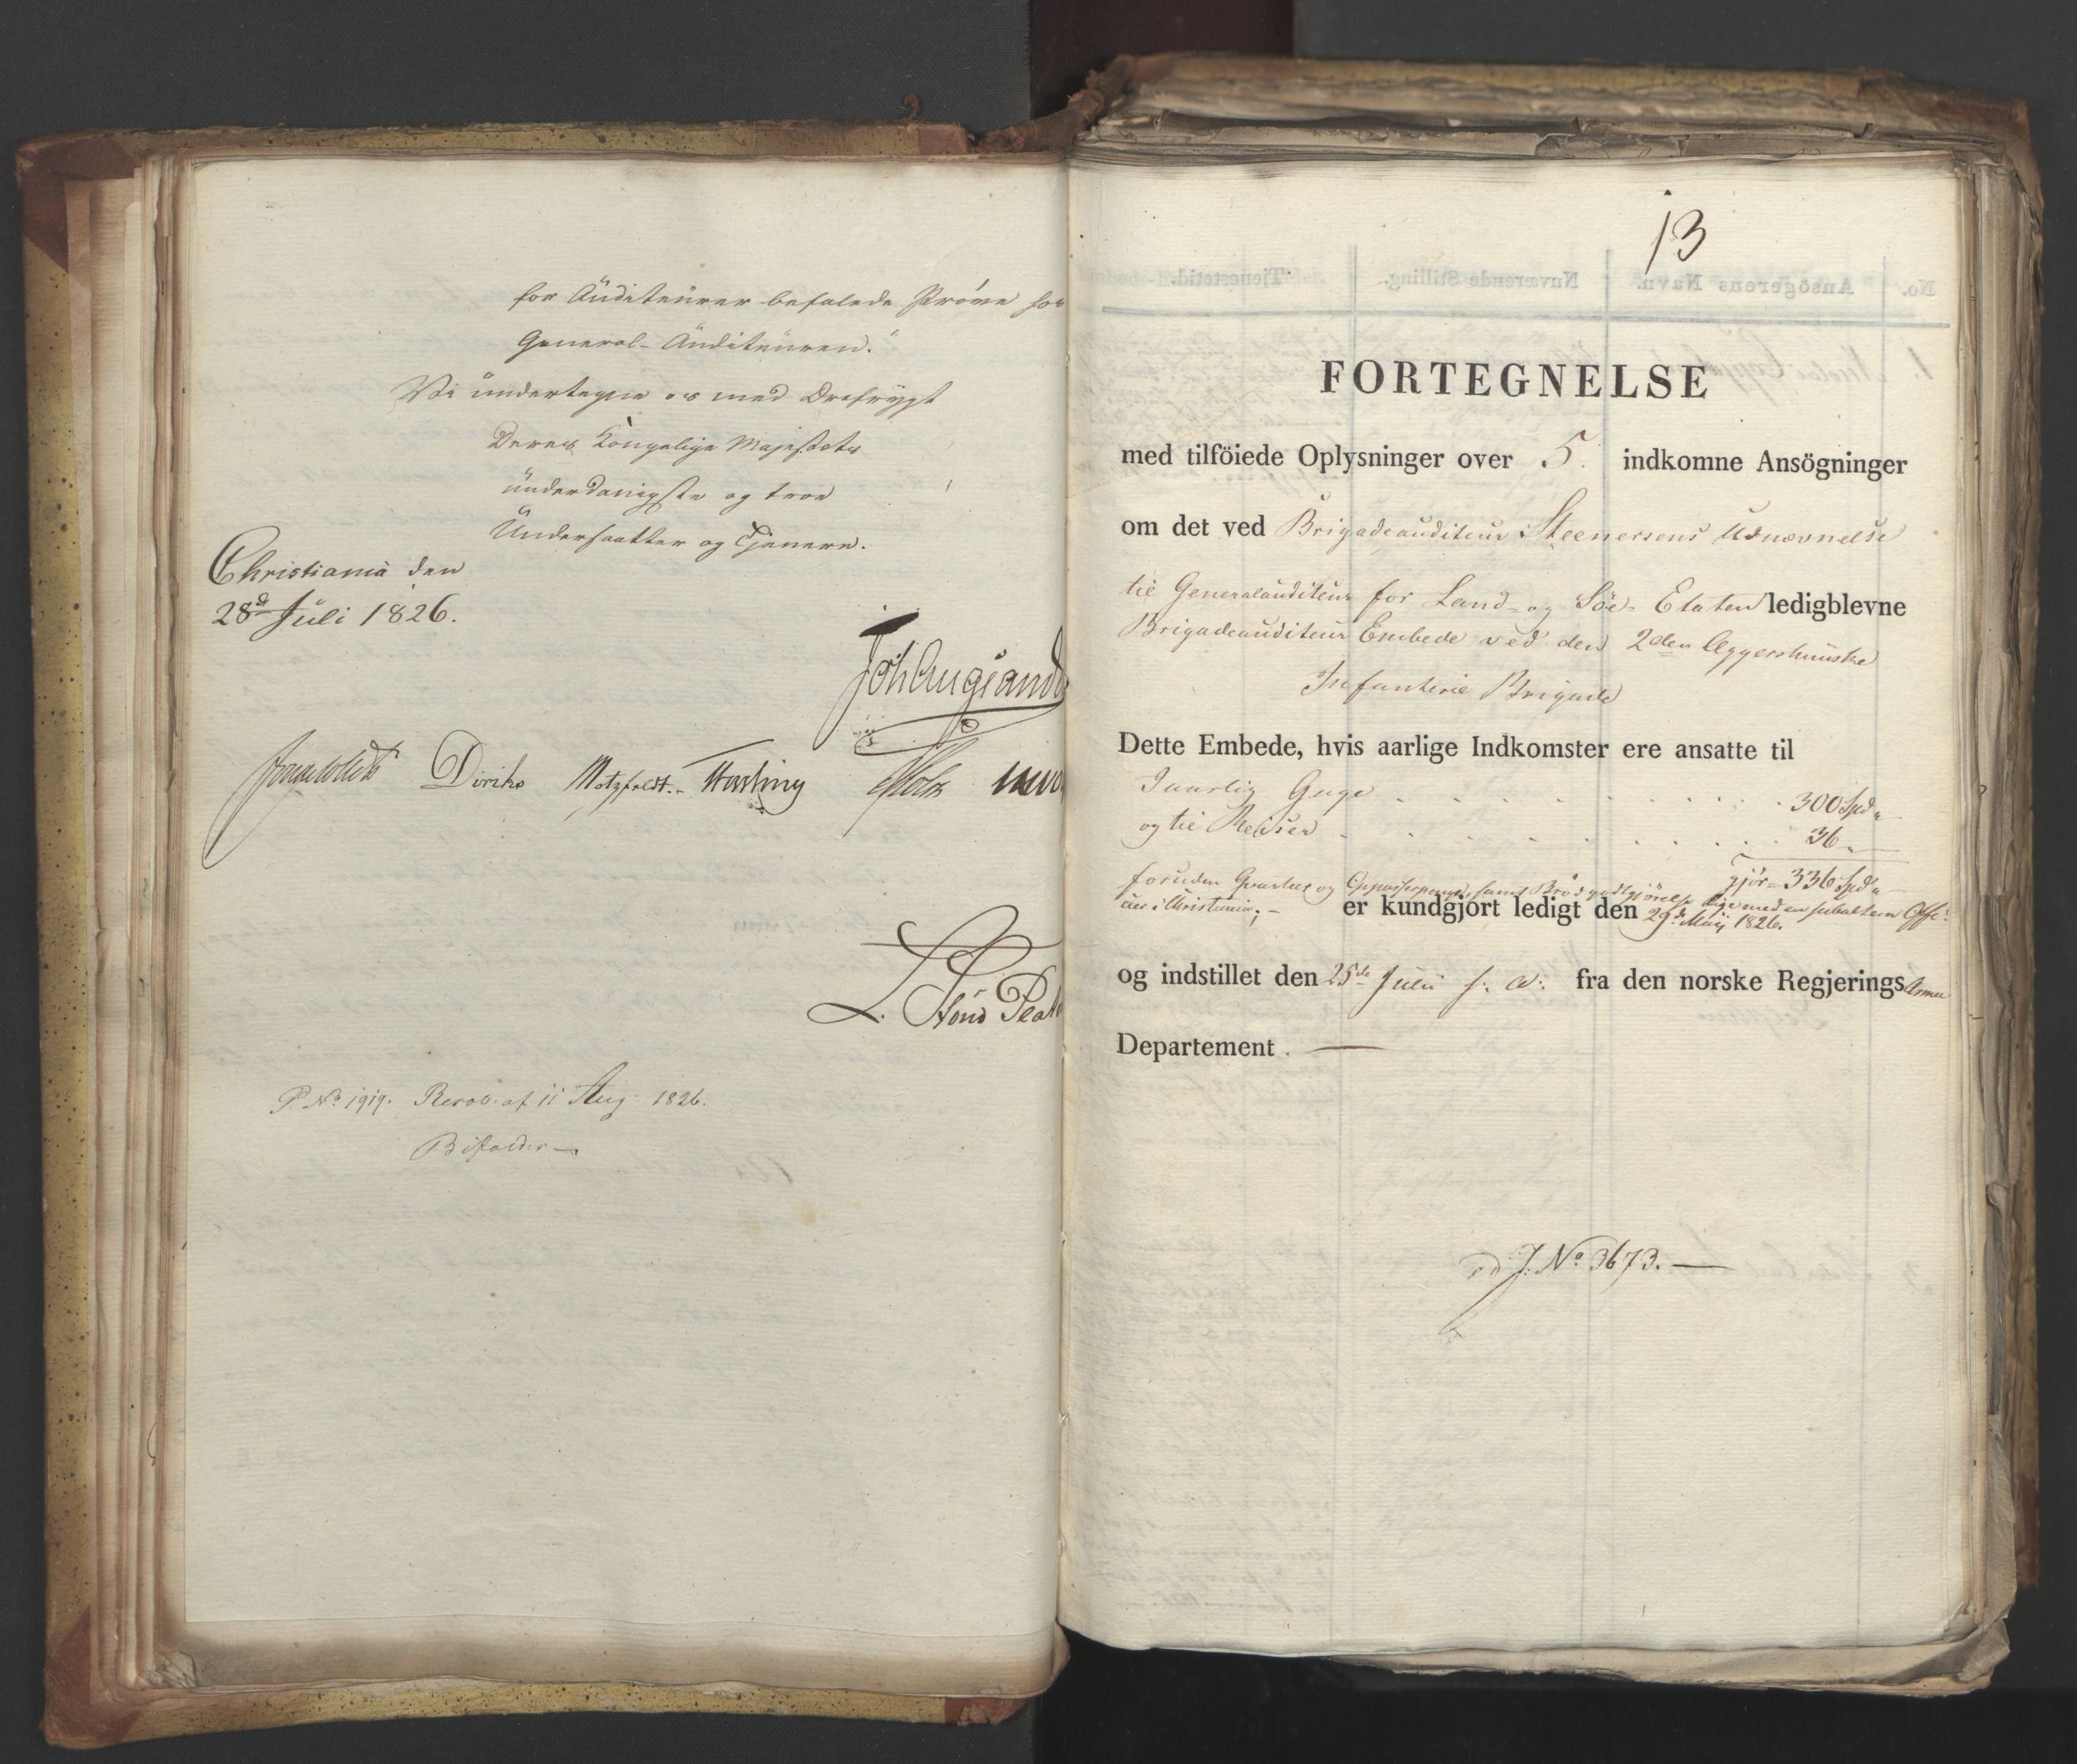 for Auditeurer befalede Prøve for
General-Auditeuren.
Vi undertegne os med Ærefrygt
Deres Kongelige Majestæts
underdanigste og troe
Undersaatter og Tjenere.
Christiania den
28de Juli 1826.
Joh Aug Sand
Diriks Motzfeldt. Hasting Holst
L.
P. No 1919. Resol. af 11 Aug. 1826.
Bifaldes
13
No. Ansögerens Navn. Nuværende Stilling. Tjenestetid.
FORTEGNELSE
med tilföiede Oplysninger over 5. indkomne Ansögninger
om det ved Brigadeauditeur Steenersens Udnævnelse
til Generalauditeur for Land- og Söe-Etaten ledigblevne
Brigadeauditeur Embede ved den 2den Aggershuuske
Infanterie Brigade
Dette Embede, hvis aarlige Indkomster ere ansatte til
I aarlig Gage . . . . . . . . . 300 Spd "
og til Reiser . . . . . . . . . 36 "
gjör = 336 Spd "
foruden Qvarteer og Oppasserpenge, samt Brödgodtgjörelse lige med en subaltern Offi-
cier i Christiania; - er kundgjort ledigt den 29de Maij 1826.
og indstillet den 25de Julii s: A: fra den norske Regjerings Armee
Departement .
J. No 3673.